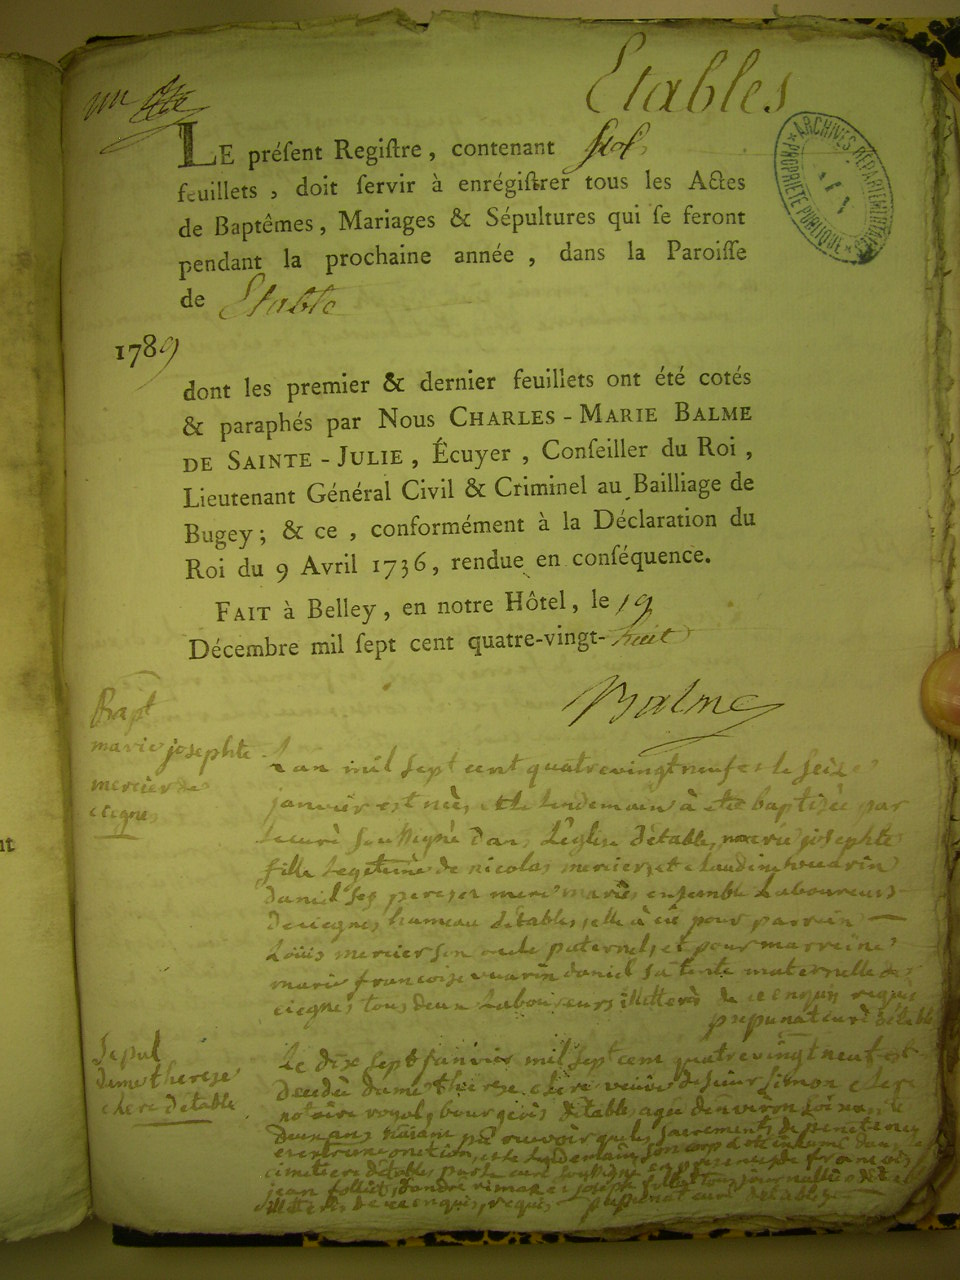 Etables
LE préſent Regiſtre, contenant
feuillets, doit ſervir à enrégiſtrer tous les Actes
de Baptêmes, Mariages & Sépultures qui ſe feront
pendant la prochaine année, dans la Paroiſſe
de Etable
1789
dont les premier & dernier feuillets ont été cotés
& paraphés par Nous CHARLES-MARIE BALME
DE SAINTE-JULIE, Écuyer, Conſeiller du Roi,
Lieutenant Général Civil & Criminel au Bailliage de
Bugey; & ce, conformément à la Déclaration du
Roi du 9 Avril 1736, rendue en conſéquence.
FAIT à Belley, en notre Hôtel, le 19
Décembre mil ſept cent quatre-vingt-huit
Balme
ARCHIVES DÉPARTEMENTALES
PROPRIÉTÉ PUBLIQUE
Bapt
marie josephte
mercier de
ciegnes
L'an mil sept cent quatrevingt neuf et le seize
janvier est née, et le lendemain à été baptizée par
le curé soussigné dans L'église d'étables, marie josephte
fille legitime de nicolas mercier, et claudine vuarin
daniel ses pere et mere mariés ensemble Laboureurs
de ciegnes hameau d'étables, elle à eu pour parrein
Loüis mercier son oncle paternel, et pour marreine
marie francoise vuarin daniel sa tante maternelle de
ciegnes tous deux Laboureurs illitterés de ce enquis requis
curé d'étable
Sepul
dame therese
clerc d'étable
Le dix sept janvier mil sept cent quatrevingt neuf est
decedée dame therese clerc veuve de sieur simon clerc
notaire royal, bourgeois d'étables agée d'environ soixante
deux ans n'aiant pû recevoir que les sacrements de penitence
et extreme onction, et le lendemain son corp à été inhumé dans le
cimetiere d'étables par le curé soussigné en presences de francois
jean tous journalliers d'étables
illitterés de ce enquis, requis curé d'étables